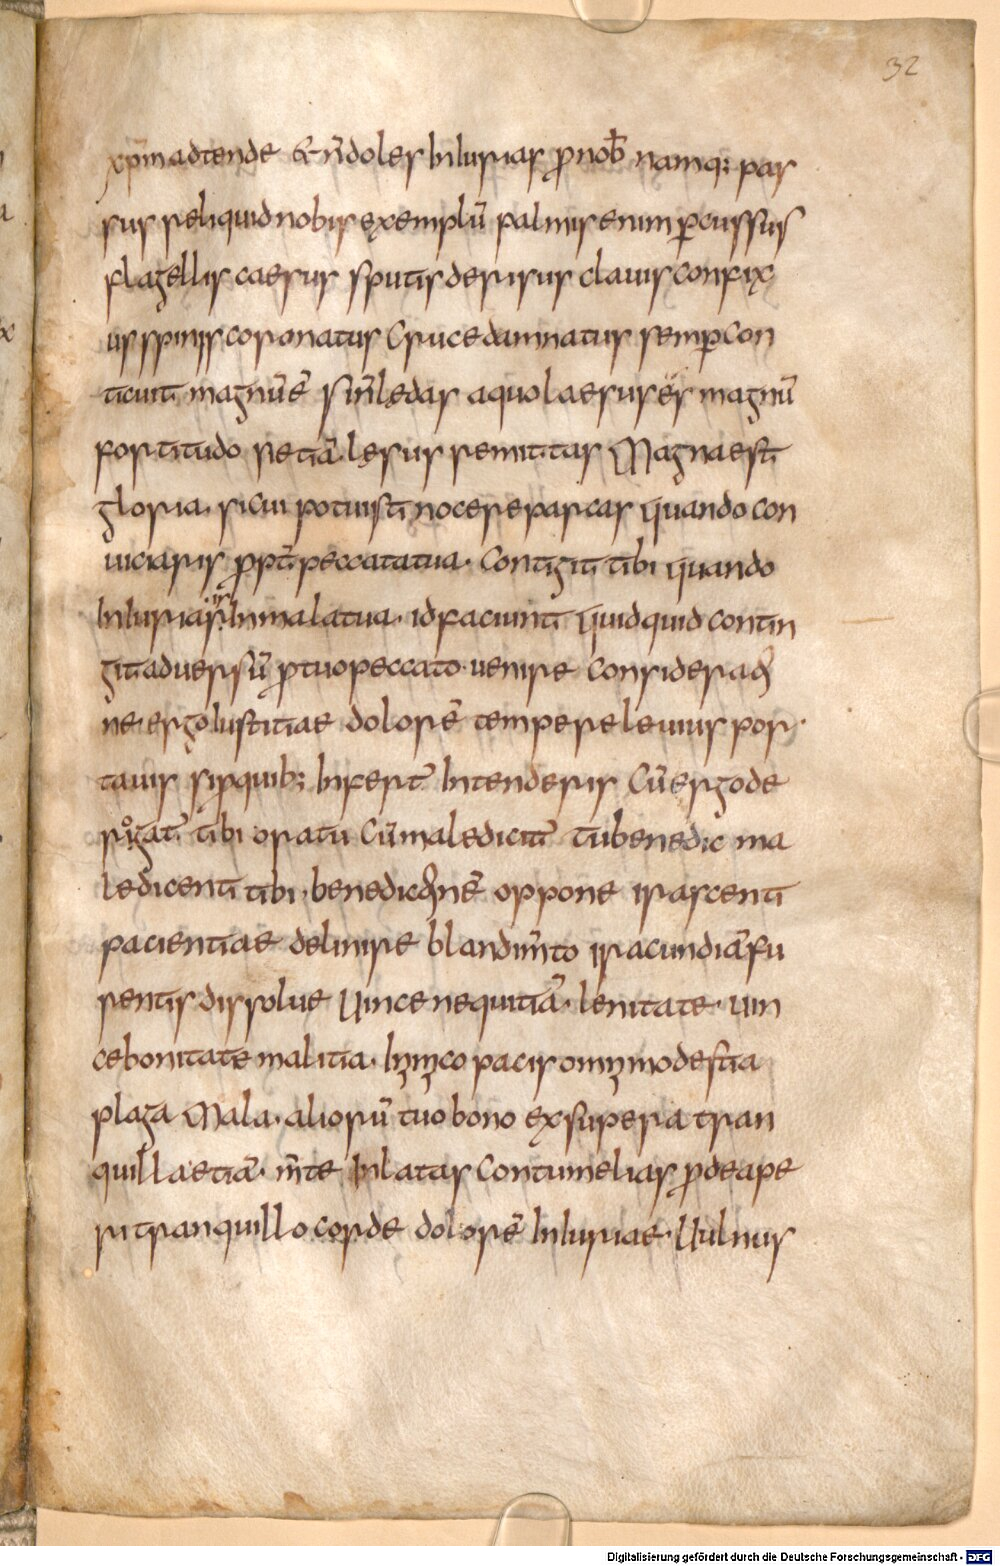 32
xp̄m adtende & n̄ doles Iniurias ꝓ nob̄ namq; pas
sus reliquid nobis exemplū palmis enim ꝑcussus
flagellis caesus sputis derisus clauis confix
us spinis coronatus Cruce damnatus semꝑ con
ticuit magnū ē sin̄ lędas a quo laesus ēs magnū
fortitudo si etiā lęsus remittas Magna est
gloria si cui potuisti nocere parcas quando con
uiciaris ꝓpt̄ peccata tua Contigit tibi quando
Iniurias In mala tua id faciunt quidquid contin
git aduersū ꝓ tuo peccato uenire Consideratio
ne ergo Iustitiae dolorē tempere leuius por
tauis si ꝓ quib; Infert̄ Intenderis Cū ergo de
rogat̄ tibi ora tu Cū maledicit̄ tu benedic ma
ledicenti tibi benedictionē oppone irascenti
pacientiae delinire blandim̄to iracundiā fu
rentis dissolue Uince nequitiā lenitate uin
ce bonitate malitia Inimico pacis omni modestia
plaga Mala aliorū tuo bono exsupera tran
quilla etiā m̄te Inlatas Contumelias ꝓde ape
ri tranquillo corde dolorē Iniuriae Uulnus
Digitalisierung gefördert durch die Deutsche Forschungsgemeinschaft - DFG